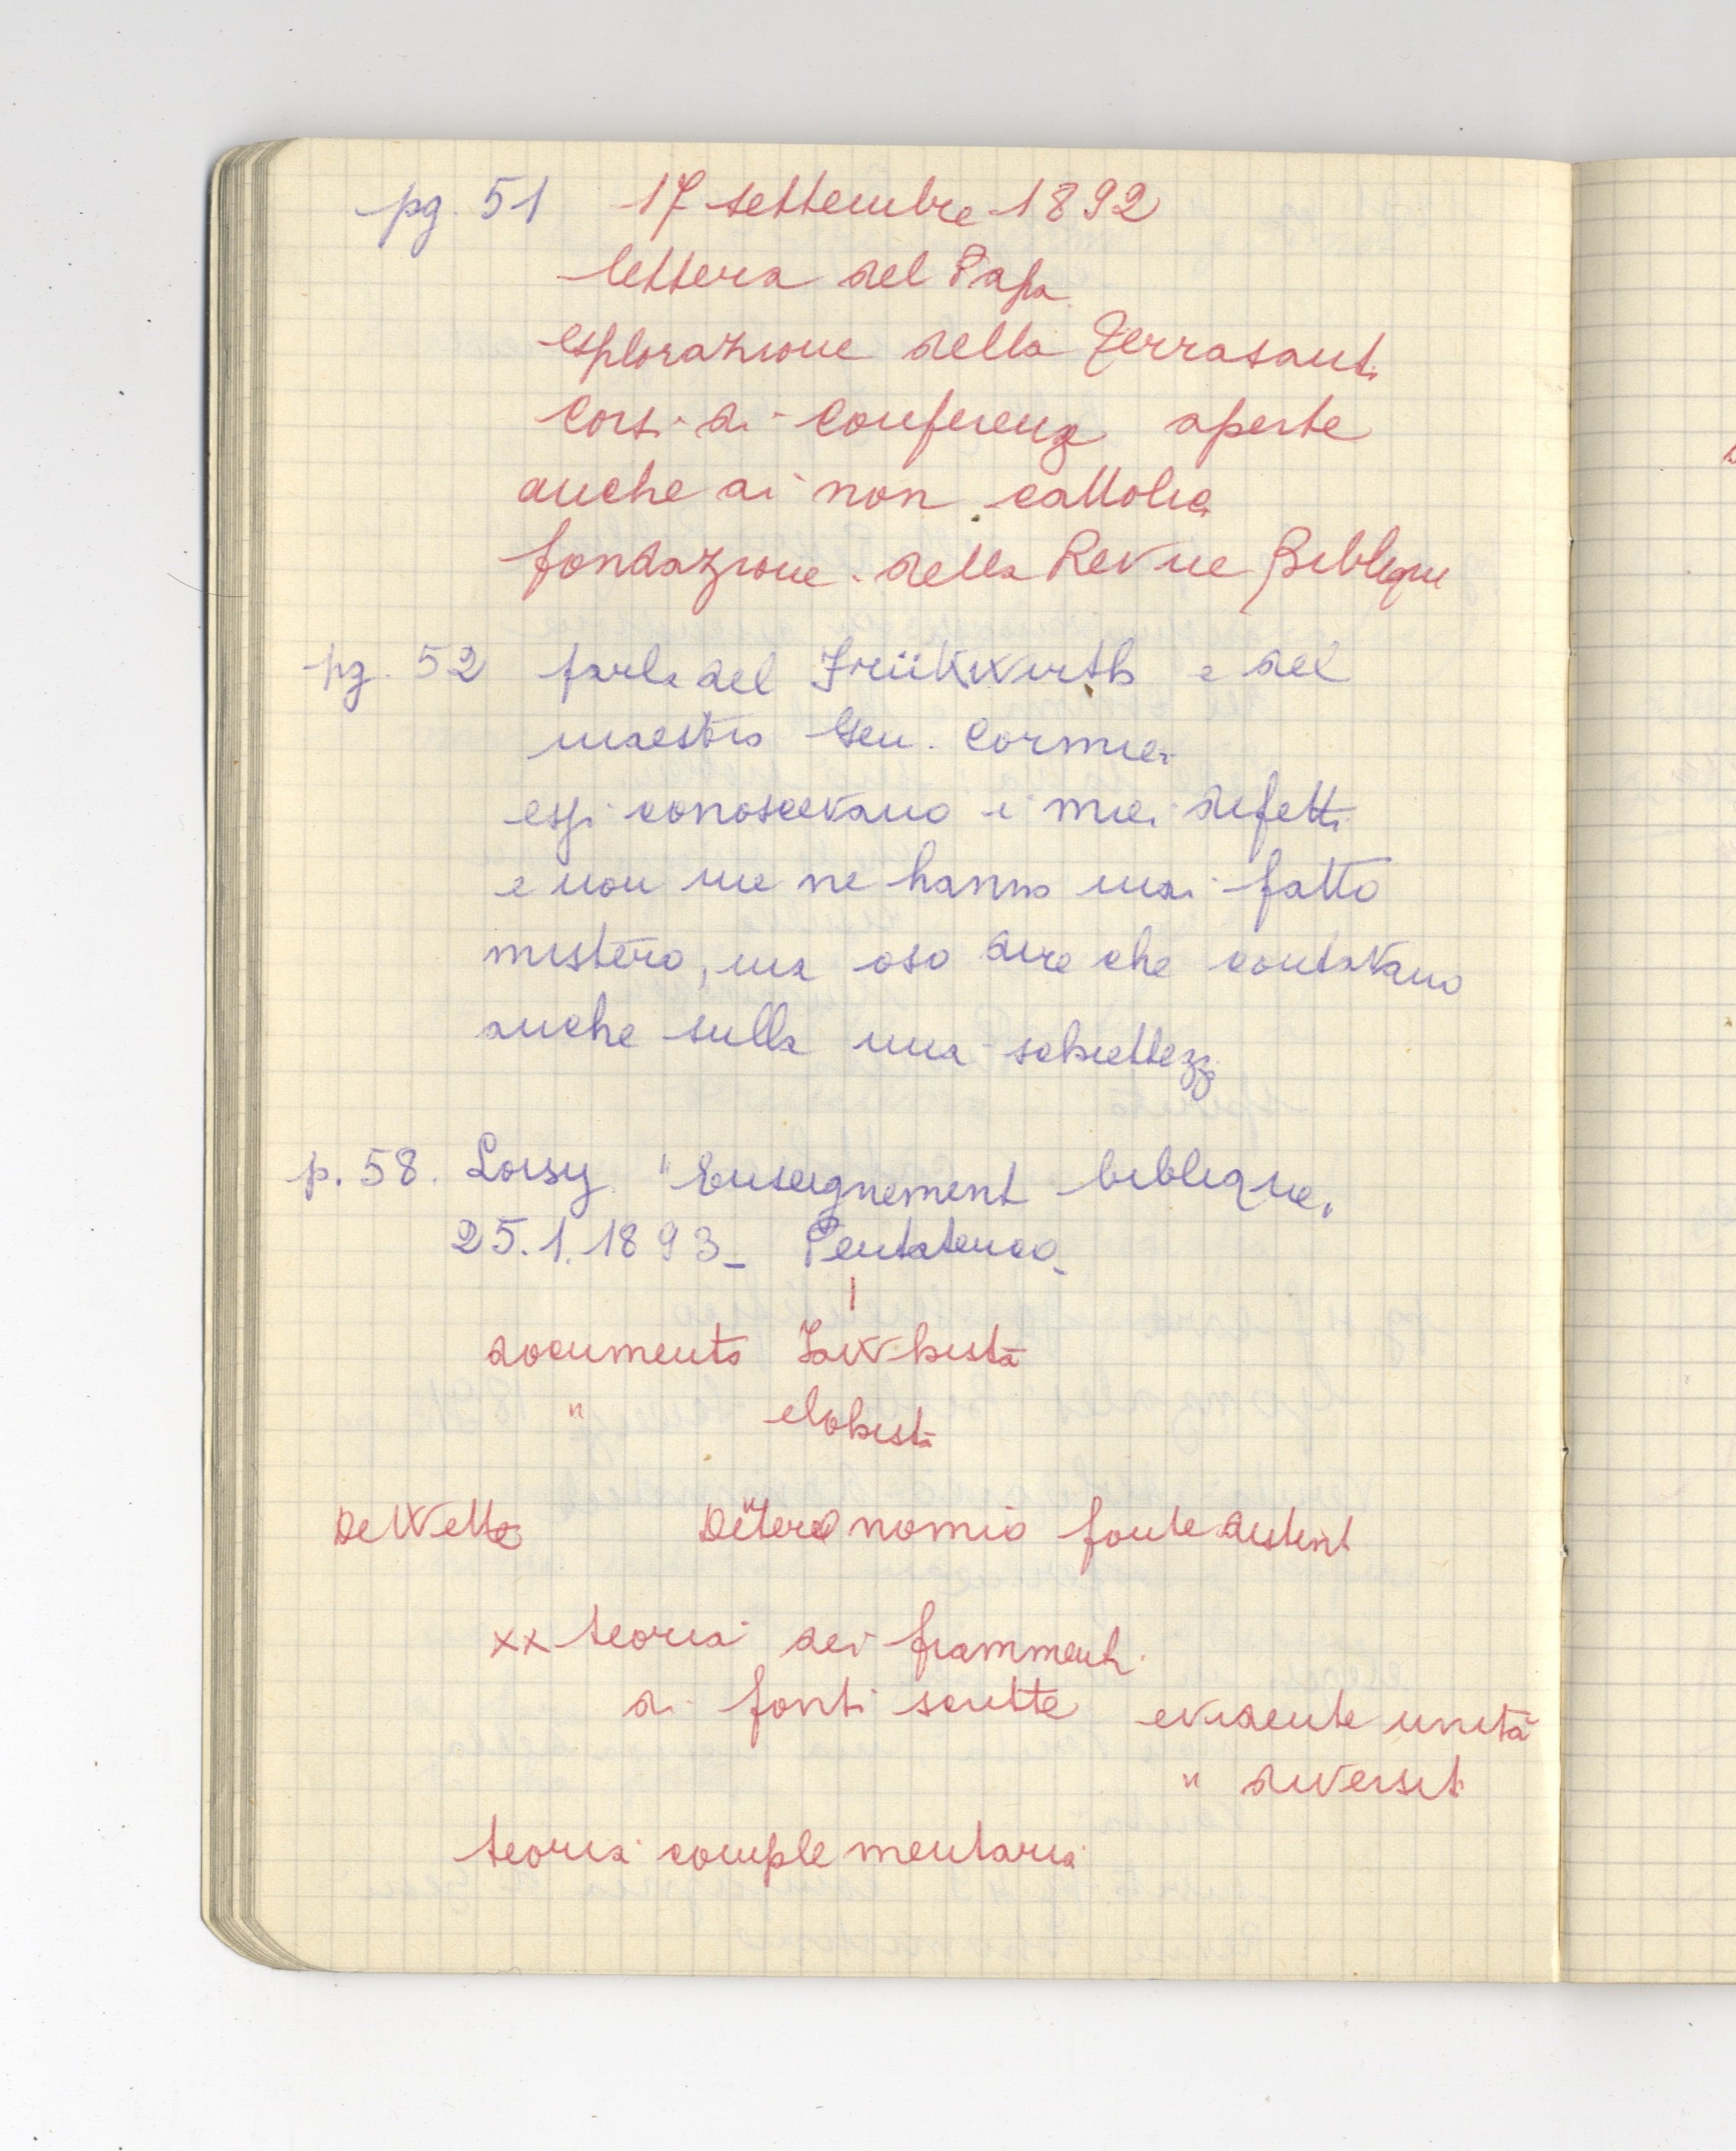 pg. 51 17 settembre 1892
lettera del Papa
esplorazione della Terrasant
Corsi di conferenze aperte
anche ai non cattolici
fondazione della Revue Biblique
pg. 52 parla del Früikwirth e del
maestro Gen. Cormier
essi conoscevano i miei difetti
e non me ne hanno mai fatto
mistero, ma oso dire che contavano
anche sulla mia schiettezz
p. 58. Loisy "Enseignement biblique"
25.1.1893_ Pentateuco_
documento Jawhista
" elohista
De Wette Deuteronomio fonte distint
xx teoria dei frammenti
di fonti scritte evidente unità
" diversit
teoria complementaria